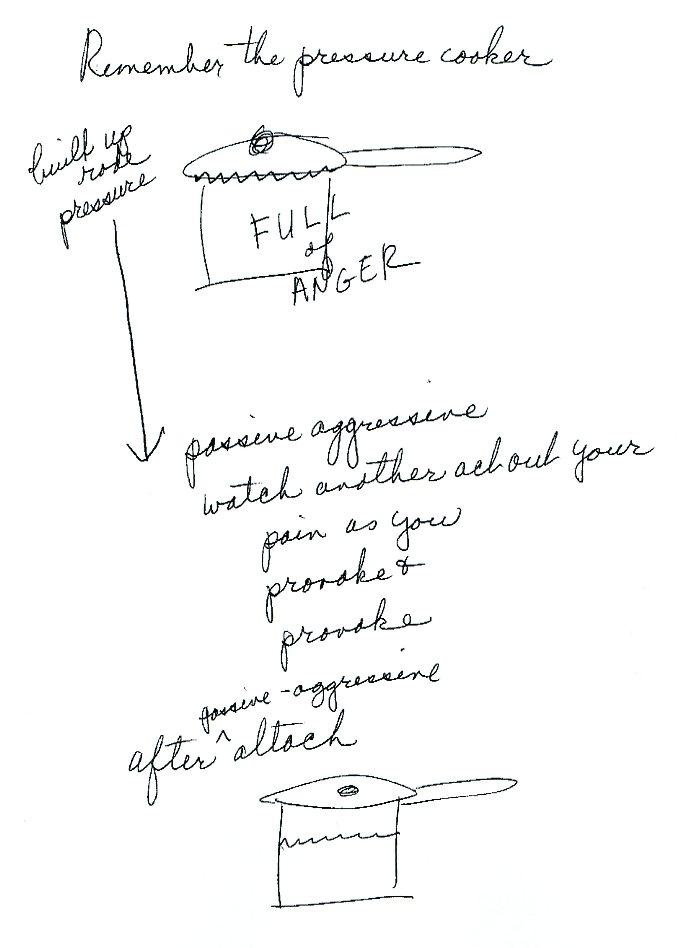 Remember the pressure cooker
built up
rage
pressure
FULL
of
ANGER
passive aggressive
watch another act out your
pain as you
provoke &
provoke
passive-aggressive
after ^ attack